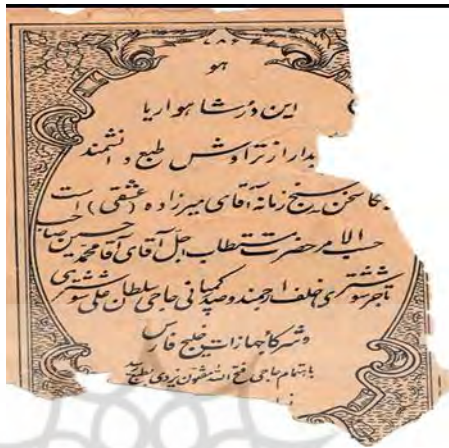 ۷۸۶
هو
این دُرّ شاهوار یا
بدار از تراوش طبع دانشمند
سخن سنج زمانه آقای میرزاده (عشقی) است
حسب الامر حضرت مستطاب اجل آقای آقا محمد حسین صاحب
تاجر شوشتری خلف ارجمند و صدر کمپانی حاجی سلطان علی شوشتری
و شرکا جهازات خلیج فارس
باهتمام حاجی فتح الله مفتون یزدی بطبع رسید